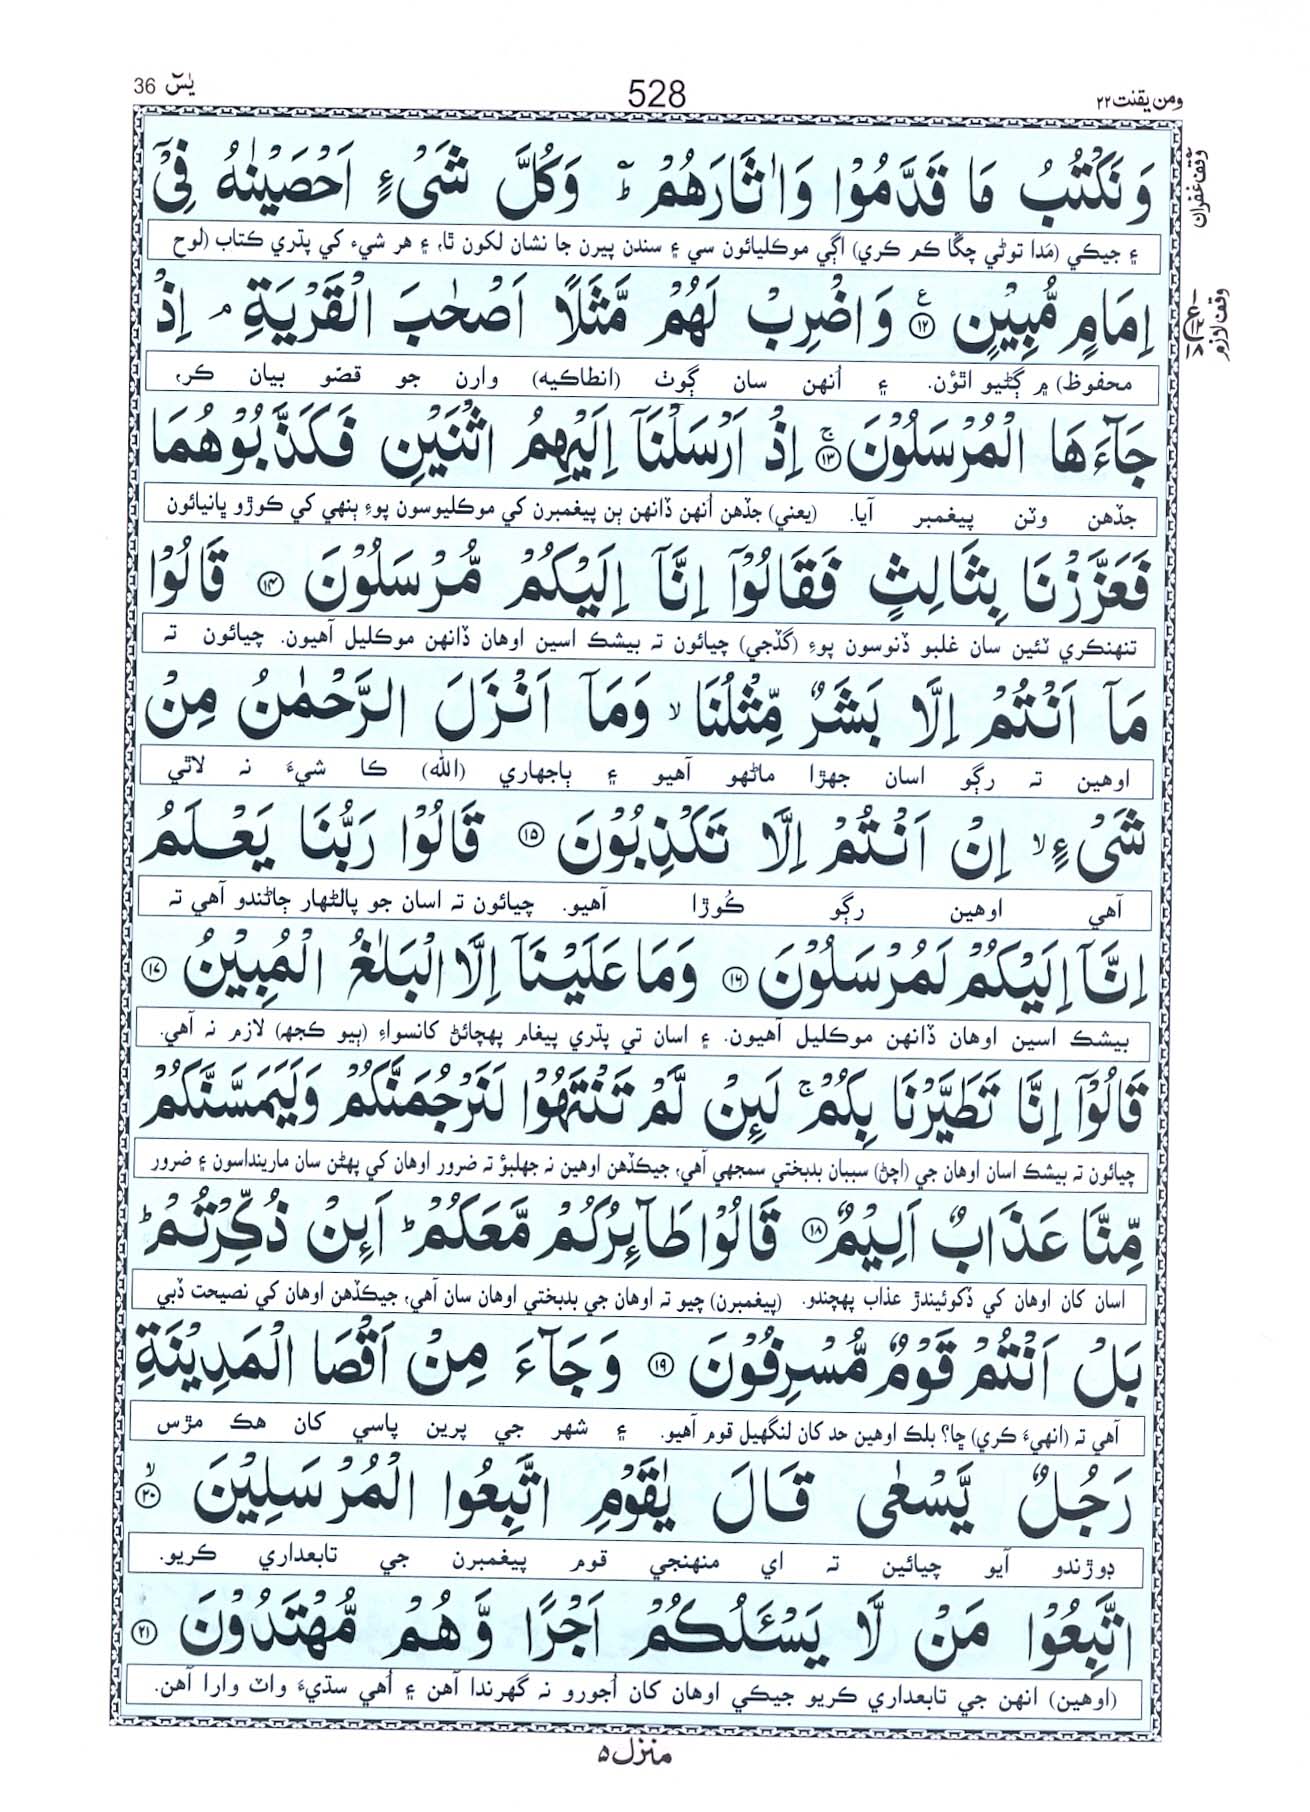 ومن يقنت ۲۲
528
يٰسٓ 36
وَ نَكْتُبُ مَا قَدَّمُوْا وَ اٰثَارَهُمْ ؕؔ وَ كُلَّ شَیْءٍ اَحْصَیْنٰهُ فِیْۤ
وقف غفران
۽ جيڪي (مَدا توڻي چڱا ڪم ڪري) اڳي موڪليائون سي ۽ سندن پيرن جا نشان لکون ٿا، ۽ هر شيء کي پڌري ڪتاب (لوح
اِمَامٍ مُّبِیْنٍ ﴿۱۲﴾ ع وَ اضْرِبْ لَهُمْ مَّثَلًا اَصْحٰبَ الْقَرْیَةِ ۘ اِذْ
وقف لازم
محفوظ) ۾ ڳڻيو اٿؤن. ۽ اُنهن سان ڳوٺ (انطاڪيه) وارن جو قصّو بيان ڪر،
جَآءَهَا الْمُرْسَلُوْنَ ﴿۱۳﴾ ۚ اِذْ اَرْسَلْنَاۤ اِلَیْهِمُ اثْنَیْنِ فَكَذَّبُوْهُمَا
جڏهن وٽن پيغمبر آيا. (يعني) جڏهن اُنهن ڏانهن ٻن پيغمبرن کي موڪليوسون پوءِ ٻنهي کي ڪوڙو ڀانيائون
فَعَزَّزْنَا بِثَالِثٍ فَقَالُوْۤا اِنَّاۤ اِلَیْكُمْ مُّرْسَلُوْنَ ﴿۱۴﴾ قَالُوْا
تنهنڪري ٽئين سان غلبو ڏنوسون پوءِ (گڏجي) چيائون ته بيشڪ اسين اوهان ڏانهن موڪليل آهيون. چيائون ته
مَاۤ اَنْتُمْ اِلَّا بَشَرٌ مِّثْلُنَا ۙ وَ مَاۤ اَنْزَلَ الرَّحْمٰنُ مِنْ
اوهين ته رڳو اسان جهڙا ماڻهو آهيو ۽ ٻاجهاري (الله) ڪا شيءَ نه لاٿي
شَیْءٍ ۙ اِنْ اَنْتُمْ اِلَّا تَكْذِبُوْنَ ﴿۱۵﴾ قَالُوْا رَبُّنَا یَعْلَمُ
آهي اوهين رڳو ڪُوڙا آهيو. چيائون ته اسان جو پالڻهار ڄاڻندو آهي ته
اِنَّاۤ اِلَیْكُمْ لَمُرْسَلُوْنَ ﴿۱۶﴾ وَ مَا عَلَیْنَاۤ اِلَّا الْبَلٰغُ الْمُبِیْنُ ﴿۱۷﴾
بيشڪ اسين اوهان ڏانهن موڪليل آهيون. ۽ اسان تي پڌري پيغام پهچائڻ کانسواءِ (ٻيو ڪجهه) لازم نه آهي.
قَالُوْۤا اِنَّا تَطَیَّرْنَا بِكُمْ ۚ لَىِٕنْ لَّمْ تَنْتَهُوْا لَنَرْجُمَنَّكُمْ وَ لَیَمَسَّنَّكُمْ
چيائون ته بيشڪ اسان اوهان جي (اچڻ) سببان بدبختي سمجهي آهي، جيڪڏهن اوهين نه جهلبؤ ته ضرور اوهان کي پهڻن سان مارينداسون ۽ ضرور
مِّنَّا عَذَابٌ اَلِیْمٌ ﴿۱۸﴾ قَالُوْا طَآىِٕرُكُمْ مَّعَكُمْ ؕ اَىِٕنْ ذُكِّرْتُمْ ؕ
اسان کان اوهان کي ڏکوئيندڙ عذاب پهچندو. (پيغمبرن) چيو ته اوهان جي بدبختي اوهان سان آهي، جيڪڏهن اوهان کي نصيحت ڏبي
بَلْ اَنْتُمْ قَوْمٌ مُّسْرِفُوْنَ ﴿۱۹﴾ وَ جَآءَ مِنْ اَقْصَا الْمَدِیْنَةِ
آهي ته (انهيءَ ڪري) ڇا؟ بلڪ اوهين حد کان لنگهيل قوم آهيو. ۽ شهر جي پرين پاسي کان هڪ مڙس
رَجُلٌ یَّسْعٰی قَالَ یٰقَوْمِ اتَّبِعُوا الْمُرْسَلِیْنَ ﴿۲۰﴾ ۙ
ڊوڙندو آيو چيائين ته اي منهنجي قوم پيغمبرن جي تابعداري ڪريو.
اتَّبِعُوْا مَنْ لَّا یَسْـَٔلُكُمْ اَجْرًا وَّ هُمْ مُّهْتَدُوْنَ ﴿۲۱﴾
(اوهين) انهن جي تابعداري ڪريو جيڪي اوهان کان اُجورو نه گهرندا آهن ۽ اُهي سڌيءَ واٽ وارا آهن.
منزل ۵